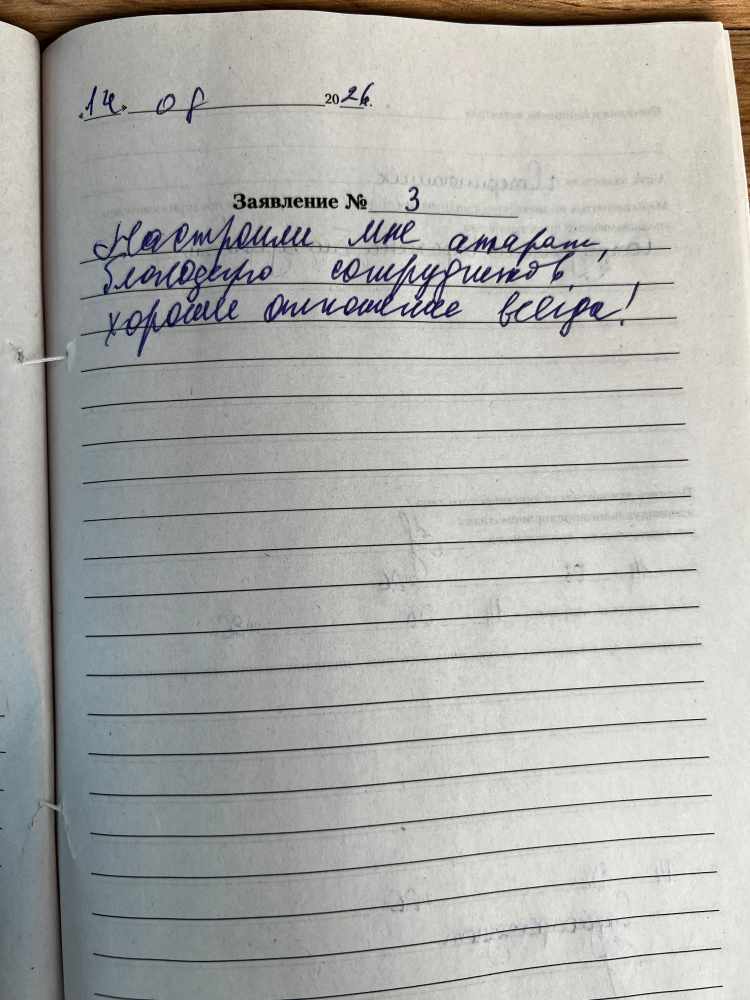 „14" 08 2026 г.
Заявление № 3
Настроили мне апарат,
благодарю сотрудников,
хорошее отношение всегда!